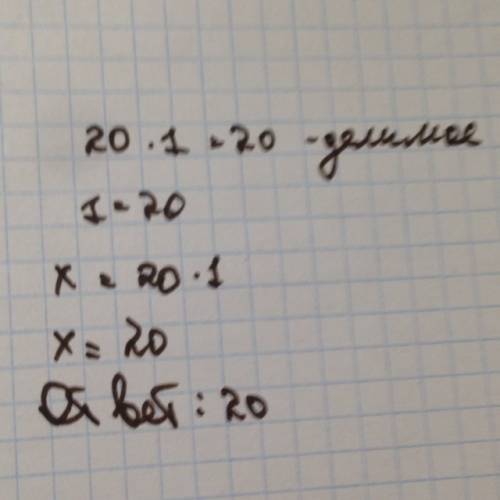 20 · 1 = 20 - делимое
1 = 20
x = 20 · 1
x = 20
Ответ: 20